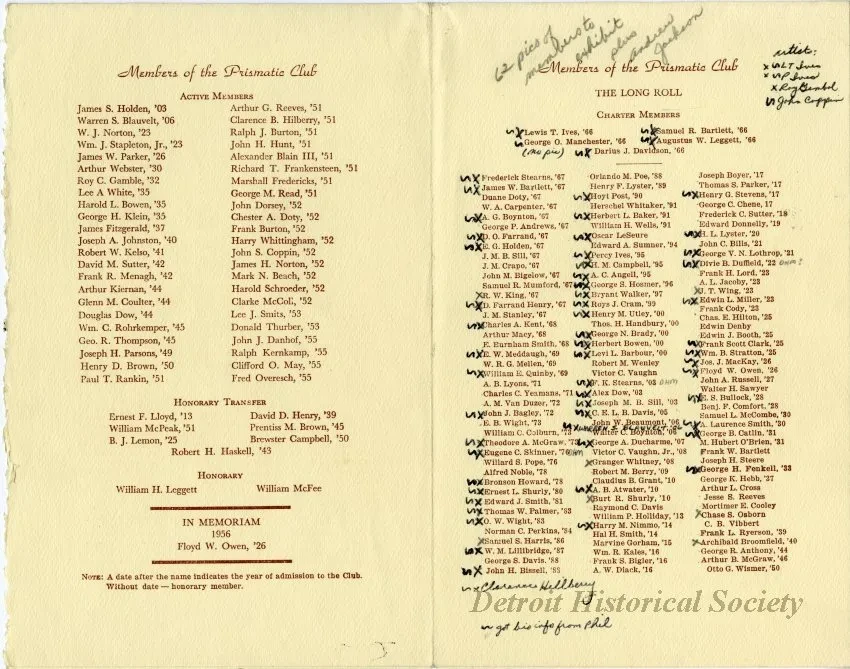 Members of the Prismatic Club
ACTIVE MEMBERS
James S. Holden, '03
Warren S. Blauvelt, '06
W. J. Norton, '23
Wm. J. Stapleton, Jr., '23
James W. Parker, '26
Arthur Webster, '30
Roy C. Gamble, '32
Lee A White, '35
Harold L. Bowen, '35
George H. Klein, '35
James Fitzgerald, '37
Joseph A. Johnston, '40
Robert W. Kelso, '41
David M. Sutter, '42
Frank R. Menagh, '42
Arthur Kiernan, '44
Glenn M. Coulter, '44
Douglas Dow, '44
Wm. C. Rohrkemper, '45
Geo. R. Thompson, '45
Joseph H. Parsons, '49
Henry D. Brown, '50
Paul T. Rankin, '51
Arthur G. Reeves, '51
Clarence B. Hilberry, '51
Ralph J. Burton, '51
John H. Hunt, '51
Alexander Blain III, '51
Richard T. Frankensteen, '51
Marshall Fredericks, '51
George M. Read, '51
John Dorsey, '52
Chester A. Doty, '52
Frank Burton, '52
Harry Whittingham, '52
John S. Coppin, '52
James H. Norton, '52
Mark N. Beach, '52
Harold Schroeder, '52
Clarke McColl, '52
Lee J. Smits, '53
Donald Thurber, '53
John J. Danhof, '55
Ralph Kernkamp, '55
Clifford O. May, '55
Fred Overesch, '55
HONORARY TRANSFER
Ernest F. Lloyd, '13
William McPeak, '51
B. J. Lemon, '25
David D. Henry, '39
Prentis M. Brown, '45
Brewster Campbell, '50
Robert H. Haskell, '43
HONORARY
William H. Leggett
William McFee
IN MEMORIAM
1956
Floyd W. Owen, '26
NOTE: A date after the name indicates the year of admission to the Club.
Without date — honorary member.
62 pics of
members to
exhibit
plus
andrew
Jackson
Members of the Prismatic Club
artist:
x S LT Ives
x S P Ives
x Roy Gambol
S John Coppin
THE LONG ROLL
CHARTER MEMBERS
Lewis T. Ives, '66
George O. Manchester, '66
(no pic)
Samuel R. Bartlett, '66
Augustus W. Leggett, '66
Darius J. Davidson, '66
Frederick Stearns, '67
James W. Bartlett, '67
Duane Doty, '67
W. A. Carpenter, '67
A. G. Boynton, '67
George P. Andrews, '67
D. O. Farrand, '67
E. G. Holden, '67
J. M. B. Sill, '67
J. M. Crapo, '67
John M. Bigelow, '67
Samuel R. Mumford, '67
R. W. King, '67
D. Farrand Henry, '67
J. M. Stanley, '67
Charles A. Kent, '68
Arthur Macy, '68
E. Burnham Smith, '68
E. W. Meddaugh, '69
W. R. G. Mellen, '69
William E. Quinby, '69
A. B. Lyons, '71
Charles C. Yeamans, '71
A. M. Van Duzer, '72
John J. Bagley, '72
E. B. Wight, '73
William C. Colburn, '73
Theodore A. McGraw, '73
Eugene C. Skinner, '76
Willard S. Pope, '76
Alfred Noble, '78
Bronson Howard, '78
Ernest L. Shurly, '80
Edward J. Smith, '81
Thomas W. Palmer, '83
O. W. Wight, '83
Norman C. Perkins, '84
Samuel S. Harris, '86
W. M. Lillibridge, '87
George S. Davis, '88
John H. Bissell, '88
Orlando M. Poe, '88
Henry F. Lyster, '89
Hoyt Post, '90
Herschel Whitaker, '91
Herbert L. Baker, '91
William H. Wells, '91
Oscar LeSeure
Edward A. Sumner, '94
Percy Ives, '95
H. M. Campbell, '95
A. C. Angell, '95
George S. Hosmer, '96
Bryant Walker, '97
Roys J. Cram, '99
Henry M. Utley, '00
Thos. H. Handbury, '00
George N. Brady, '00
Herbert Bowen, '00
Levi L. Barbour, '00
Robert M. Wenley
Victor C. Vaughn
F. K. Stearns, '03 OHM
Alex Dow, '03
Joseph M. B. Sill, '03
C. E. L. B. Davis, '05
John W. Beaumont, '06
WARREN S. BLAUVELT, '06
Willis C. Boynton, '06
George A. Ducharme, '07
Victor C. Vaughn, Jr., '08
Granger Whitney, '08
Robert M. Berry, '09
Claudius B. Grant, '10
A. B. Atwater, '10
Burt R. Shurly, '10
Raymond C. Davis
William P. Holliday, '13
Harry M. Nimmo, '14
Hal H. Smith, '14
Marvine Gorham, '15
Wm. R. Kales, '16
Frank S. Bigler, '16
A. W. Diack, '16
Joseph Boyer, '17
Thomas S. Parker, '17
Henry G. Stevens, '17
George C. Chene, '17
Frederick C. Sutter, '18
Edward Donnelly, '19
H. L. Lyster, '20
John C. Bills, '21
George V. N. Lothrop, '21
Divie B. Duffield, '22 OHM?
Frank H. Lord, '23
A. L. Jacoby, '23
J. T. Wing, '23
Edwin L. Miller, '23
Frank Cody, '23
Chas. E. Hilton, '25
Edwin Denby
Edwin J. Booth, '25
Frank Scott Clark, '25
Wm. B. Stratton, '25
Jos. J. MacKay, '26
Floyd W. Owen, '26
John A. Russell, '27
Walter H. Sawyer
E. S. Bullock, '28
Benj. F. Comfort, '28
Samuel L. McCombe, '30
A. Laurence Smith, '30
George B. Catlin, '31
M. Hubert O'Brien, '31
Frank W. Bartlett
Joseph H. Steere
George H. Fenkell, '33
George K. Hebb, '27
Arthur L. Cross
Jesse S. Reeves
Mortimer E. Cooley
Chase S. Osborn
C. B. Vibbert
Frank L. Ryerson, '39
Archibald Broomfield, '40
George R. Anthony, '44
Arthur B. McGraw, '46
Otto G. Wismer, '50
S x Clarance Hillberry
S got bio info from Phil
Detroit Historical Society